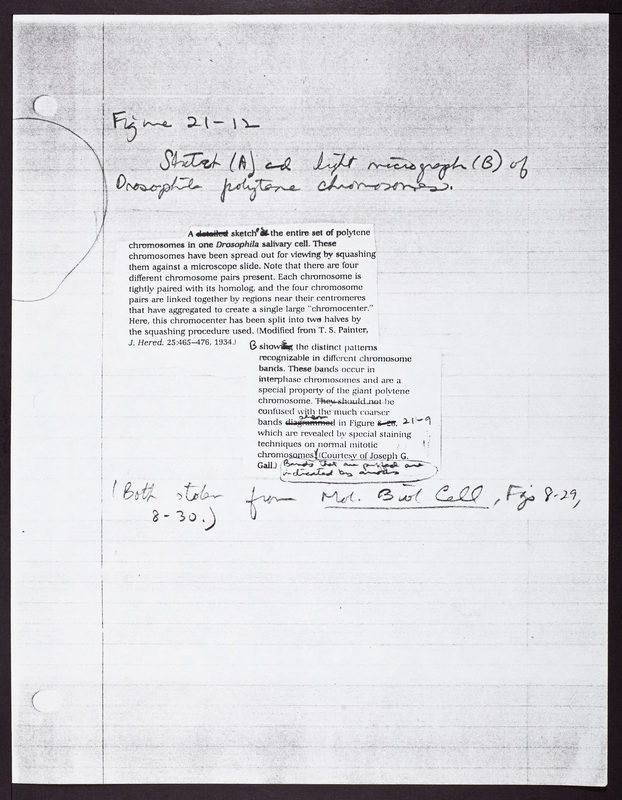 Figure 21-12
Sketch (A) and light micrograph (B) of
Drosophila polytene chromosomes.
A detailed sketch of the entire set of polytene
chromosomes in one Drosophila salivary cell. These
chromosomes have been spread out for viewing by squashing
them against a microscope slide. Note that there are four
different chromosome pairs present. Each chromosome is
tightly paired with its homolog, and the four chromosome
pairs are linked together by regions near their centromeres
that have aggregated to create a single large "chromocenter."
Here, this chromocenter has been split into two halves by
the squashing procedure used. (Modified from T. S. Painter,
J. Hered. 25:465–476, 1934.)
B showing the distinct patterns
recognizable in different chromosome
bands. These bands occur in
interphase chromosomes and are a
special property of the giant polytene
chromosome. They should not be
confused with the much coarser
seen
bands diagrammed in Figure 8-20, 21-9
which are revealed by special staining
techniques on normal mitotic
chromosomes. (Courtesy of Joseph G.
Gall.) Bands that are puffed are
indicated by arrows
(Both stolen from Mol. Biol Cell, Figs 8-29,
8-30.)